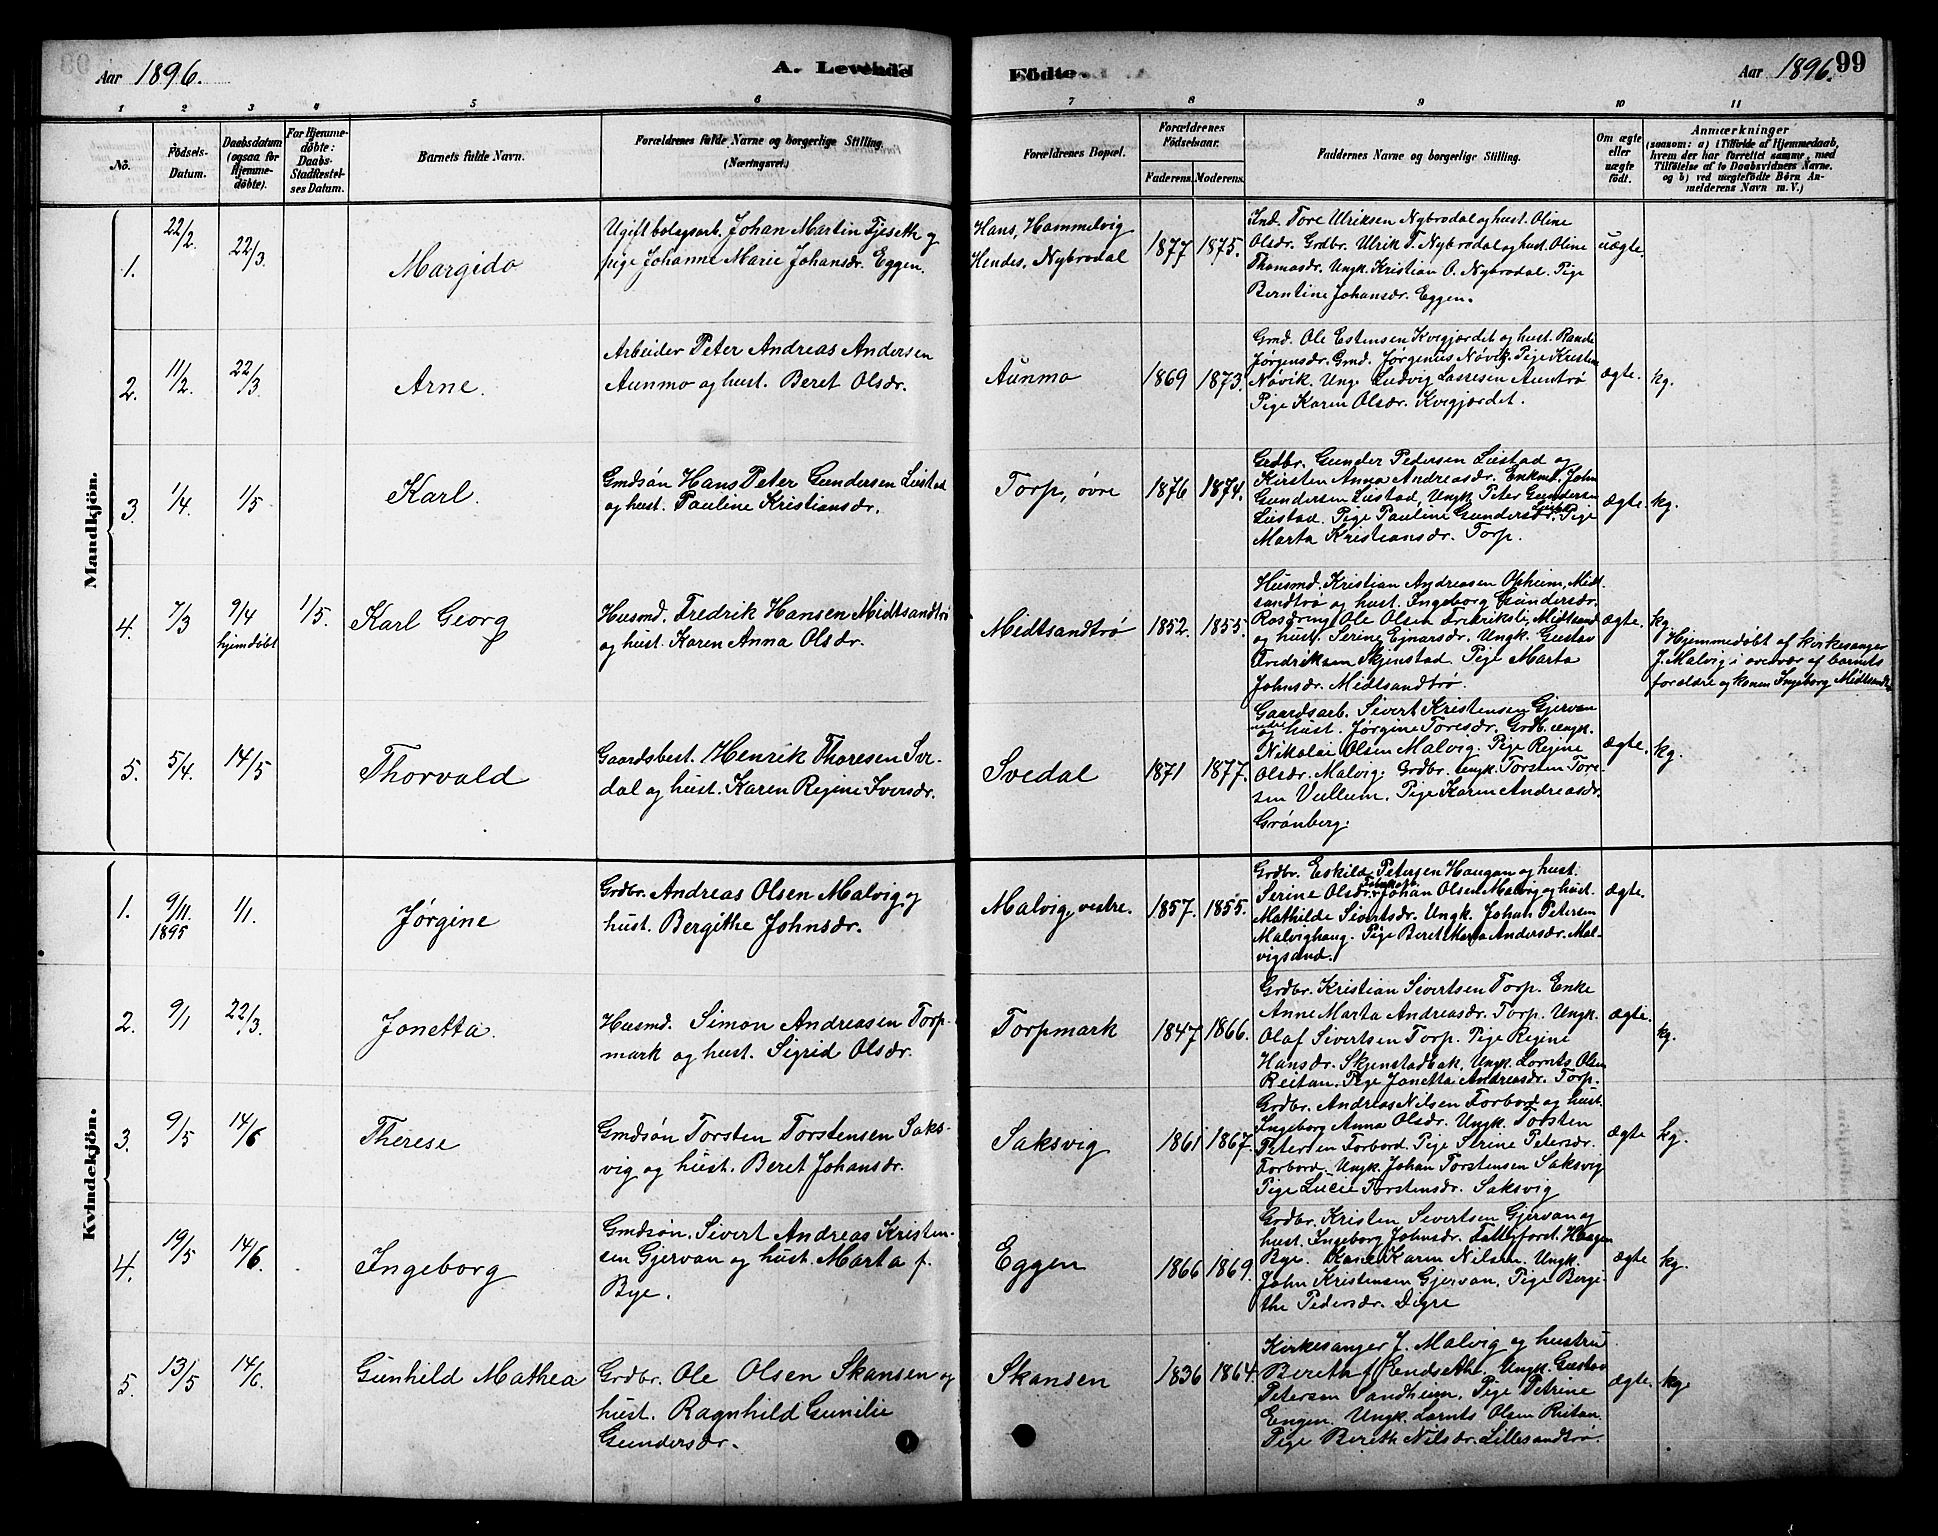 Aar 1896.
A. Levende
Födte.
Aar 1896. 99
1 2 3 4 5 6 7 8 9 10 11
No.
Födsels-
Datum.
Daabsdatum
(ogsaa for
Hjemme-
döbte).
For Hjemme-
döbte:
Daabs-
Stadfæstel-
ses Datum.
Barnets fulde Navn.
Forældrenes fulde Navne og borgerlige Stilling.
(Næringsvei.)
Forældrenes Bopæl.
Forældrenes
Födselsaar.
Faderens. Moderens.
Faddernes Navne og borgerlige Stilling.
Om ægte
eller
uægte
födt.
Anmærkninger
(saasom: a) i Tilfælde af Hjemmedaab,
hvem der har forrettet samme, med
Tilföielse af to Daabsvidners Navne.
og b) ved uægtefödte Börn An-
melderens Navn m. V.)
Mandkjön.
1. 22/2. 22/3. Margido
Ugift bolagsarb. Johan Martin Fjeseth og
pige Johanne Marie Johansdr. Eggen.
Hans, Hammelvig
Hendes, Nybrodal
1877 1875.
Ind. Tore Ulriksen Nybrodal og hust. Oline
Olsdr. Grdbr. Ulrik T. Nybrodal og hust. Oline
Thomasdr. Ungk. Kristian O. Nybrodal. Pige
Berntine Johansdr. Eggen.
uægte.
2. 11/2. 22/3. Arne.
Arbeider Peter Andreas Andersen
Aunmo og hust. Beret Olsdr.
Aunmo
1869 1873.
Gmd. Ole Estensen Kvigjordet og hust. Randi
Jørgensdr. Gmd. Jørgenius Nøvik. Pige Kristin
Nøvik. Ungk. Ludvig Lassesen Auntrø
Pige Karen Olsdr. Kvigjordet.
ægte. kg.
3. 1/4. 1/5 Karl.
Gmdsøn Hans Peter Gundersen Liestad
og hust. Pauline Kristiansdr.
Torp, øvre
1876 1874.
Grdbr. Gunder Pedersen Liestad og
Kirsten Anna Andreasdr. Enkmd. John
Gundersen Liestad, Ungk. Peter Gundersen
Liestad. Pige Pauline Gundersdr. Liestad. Pige
Marta Kristiansdr. Torp.
ægte. kg.
4. 7/3 9/4 hjemdöbt 1/5. Karl Georg
Husmd. Fredrik Hansen Midtsandtrø
og hust. Karen Anna Olsdr.
Midtsandtrø
1852. 1855.
Husmd. Kristian Andreasen Opheim, Midt
sandtrø og hust. Ingeborg Gundersdr.
Ole Olsen Midtsand
og hust. Serine Ejnarsdr. Ungk. Gustav
Fredriksen Skjenstad. Pige Marta
Johnsdr. Midtsandtrø.
ægte. kg.
Hjemmedøbt af kirkesanger
J. Malvig i overvær af barnets
forældre og konen Ingeborg Midtsandtrø
5. 5/4. 14/5 Thorvald
Gaardsbest. Henrik Thoresen Sve-
dal og hust. Karen Regine Iversdr.
Svedal
1871 1877.
Gaardsarb. Sivert Kristensen Gjervan
nedre og hust. Jørgine Toresdr. Grdb. ungk.
Nikolai Olsen Malvig. Pige Regine
Olsdr. Malvig. Grdbr. ungk. Torsten Tore-
sen Vullum. Pige Karen Andreasdr.
Grønberg.
ægte. kg.
Kvindekjön.
1. 9/11. 1895 1/1. Jørgine
Grdbr. Andreas Olsen Malvig og
hust. Bergithe Johnsdr.
Malvig, vestre.
1857. 1855.
Grdbr. Eskild Petersen Haugan og hust.
Serine Olsdr. Johan Olsen Malvig og hust.
Mathilde Sivertsdr. Ungk. Johan Petersen
Malvighaug. Pige Beret Marta Andersdr. Mal-
vigsand.
ægte.
2. 9/1 22/3. Jonetta.
Husmd. Simon Andreasen Torp-
mark og hust. Sigrid Olsdr.
Torpmark
1847 1866.
Grdbr. Kristian Sivertsen Torp. Enke
Anne Marta Andreasdr. Torp. Ungk.
Olaf Sivertsen Torp. Pige Regine
Hansdr. Skjenstadbak, Ungk. Lornts Olsen
Reitan. Pige Jonetta Andreasdr. Torp.
ægte. kg.
3. 9/5 14/6 Therese
Gmdsøn Torsten Torstensen Saks-
vig og hust. Beret Johansdr.
Saksvig
1861 1867.
Grdbr. Andreas Nilsen Forbord og hust.
Ingeborg Anna Olsdr. Ungk. Torsten
Petersen Forbord. Pige Serine Petersdr.
Forbord. Ungk. Johan Torstensen Saksvig
Pige Lucie Torstensdr. Saksvig
ægte kg.
4. 19/5 14/6. Ingeborg
Gmdsøn. Sivert Andreas Kristen-
sen Gjervan og hust. Marta f.
Bye.
Eggen
1866 1869.
Grdbr. Kristen Sivertsen Gjervan og
hust. Ingeborg Johnsdr. Fattigforst. Haagen
Bye. Karen Nilsen. Ungk.
John Kristensen Gjervan, Pige Bergi-
the Pedersdr. Digre
ægte kg.
5. 13/5 14/6. Gunhild Mathea
Grdbr. Ole Olsen Skansen og
hust. Ragnhild Gunilie
Gundersdr.
Skansen
1836 1864.
Kirkesanger J. Malvig og hustru
Bereth f. Endseth. Ungk. Gustav
Petersen Sandheim, Pige Petrine
Engen. Ungk. Lornts Olsen Reitan.
Pige Bereth Nilsdr. Lillesandtrø.
ægte. kg.